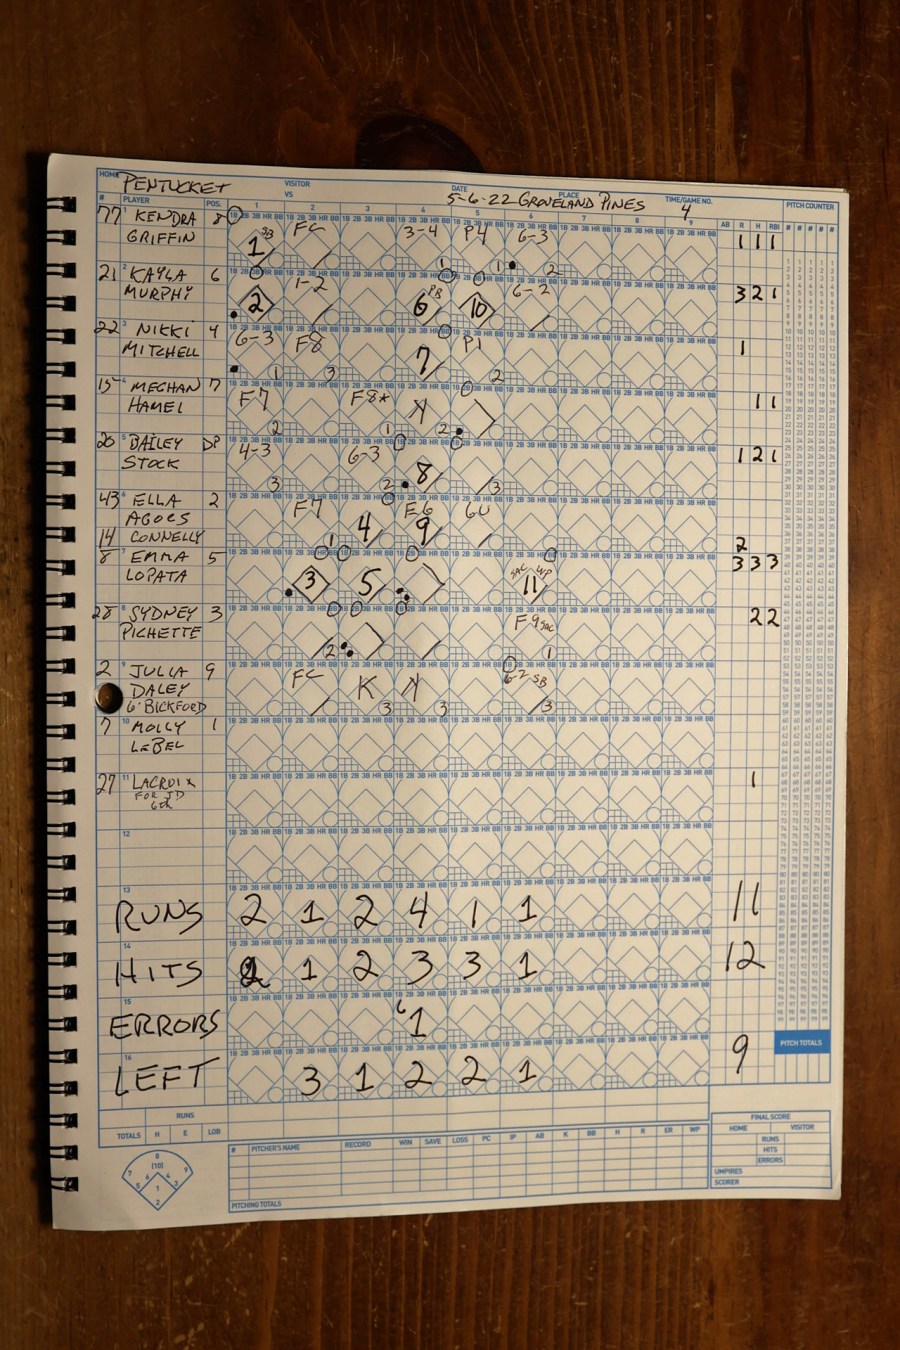 HOME PENTUCKET VISITOR VS DATE 5-6-22 PLACE GROVELAND PINES TIME/GAME NO. 4
# PLAYER POS. 1 2 3 4 5 6 7 8 9 AB R H RBI PITCH COUNTER
77 KENDRA GRIFFIN 8 1 SB FC 3-4 1 P4 1 6-3 2 1 1 1
21 KAYLA MURPHY 6 2 1-2 6 PB 10 6-2 3 2 1
22 NIKKI MITCHELL 4 6-3 1 F8 3 7 P1 2 1
15 MEGHAN HAMEL 7 F7 2 F8* 1 K 2 1 1
20 BAILEY STOCK DP 4-3 3 6-3 2 8 3 1 2 1
43 ELLA AGOCS 2 F7 1 4 E6 9 6U
14 CONNELLY 2
8 EMMA LOPATA 5 3 5 SAC WP 11 3 3 3
28 SYDNEY PICHETTE 3 2 F9 SAC 1 2 2
2 JULIA DALEY 9 FC K 3 K 3 6-2 SB 3
6 BICKFORD
7 MOLLY LEBEL 1
27 LACROIX FOR JD 6th 1
12
13 RUNS 2 1 2 4 1 1 11
14 HITS 2 1 2 3 3 1 12
15 ERRORS 6 1
16 LEFT 3 1 2 2 1 9
PITCH TOTALS
RUNS
TOTALS H E LOB
# PITCHER'S NAME RECORD WIN SAVE LOSS PC IP AB K BB H R ER WP
PITCHING TOTALS
FINAL SCORE
HOME VISITOR
RUNS
HITS
ERRORS
UMPIRES
SCORER
8
(10)
7 9
6 4
5 1 3
2